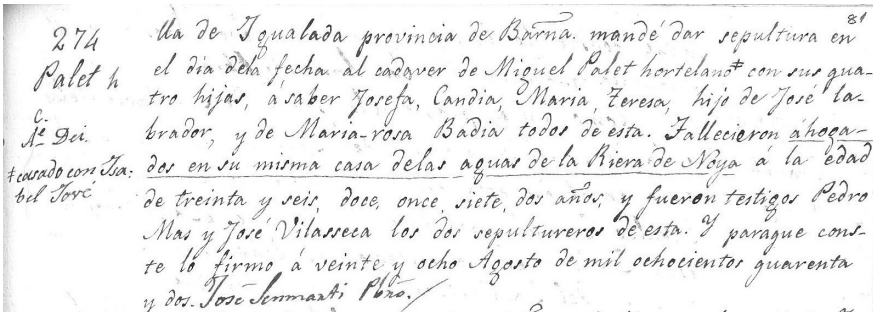 81
274
Palet h
C.
A.e Dei.
‡casado con Isa-
bel Tové
lla de Igualada provincia de Barna. mandé dar sepultura en
el dia dela fecha al cadaver de Miguel Palet hortelano‡ con sus qua-
tro hijas, á saber Josefa, Candia, Maria, Teresa, hijo de José la-
brador, y de Maria-rosa Badia todos de esta. Fallecieron áhoga-
dos en su misma casa delas aguas de la Riera de Noya á la edad
de treinta y seis, doce, once, siete, dos años, y fueron testigos Pedro
Mas y José Vilasseca los dos sepultureros de esta. Y paraque cons-
te lo firmo á veinte y ocho Agosto de mil ochocientos quarenta
y dos. José Senmartí Pbro.